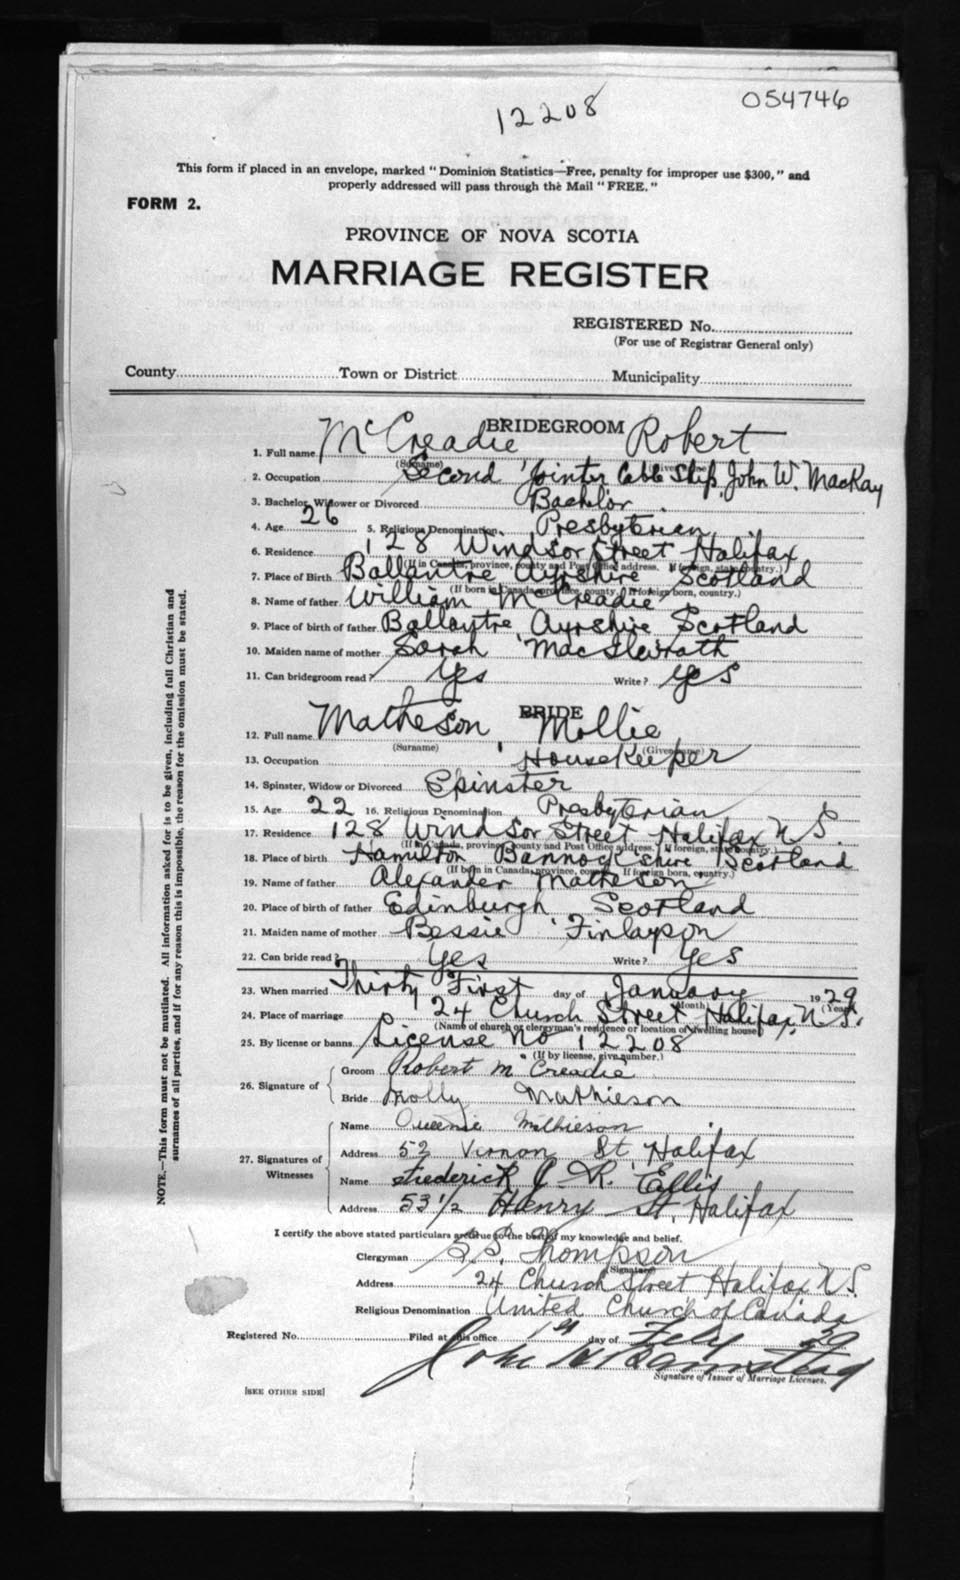 12208
054746
This form if placed in an envelope, marked "Dominion Statistics—Free, penalty for improper use $300," and
properly addressed will pass through the Mail "FREE."
FORM 2.
PROVINCE OF NOVA SCOTIA
MARRIAGE REGISTER
REGISTERED No.
(For use of Registrar General only)
County Town or District Municipality
BRIDEGROOM
1. Full name McCreadie Robert
(Surname) (Given name)
2. Occupation Second Jointer Cable Ship John W. MacKay
3. Bachelor, Widower or Divorced Bachelor
4. Age 26 5. Religious Denomination Presbyterian
6. Residence 128 Windsor Street Halifax
(If in Canada, province, county and Post Office address. If foreign, state country.)
7. Place of Birth Ballantre Ayrshire Scotland
(If born in Canada, province, county. If foreign born, country.)
8. Name of father William McCreadie
9. Place of birth of father Ballantre Ayrshire Scotland
10. Maiden name of mother Sarah MacIlwrath
11. Can bridegroom read? Yes Write? Yes
BRIDE
12. Full name Matheson Mollie
(Surname) (Given name)
13. Occupation HouseKeeper
14. Spinster, Widow or Divorced Spinster
15. Age 22 16. Religious Denomination Presbyterian
17. Residence 128 Windsor Street Halifax N S.
(If in Canada, province, county and Post Office address. If foreign, state country.)
18. Place of birth Hamilton Bannockshire Scotland
(If born in Canada, province, county. If foreign born, country.)
19. Name of father Alexander Matheson
20. Place of birth of father Edinburgh Scotland
21. Maiden name of mother Bessie Finlayson
22. Can bride read? Yes Write? Yes
23. When married Thirty First day of January 1929
(Month) (Year)
24. Place of marriage 24 Church Street Halifax, N.S.
(Name of church or clergyman's residence or location of dwelling house)
25. By license or banns License No 12208
(If by license, give number.)
26. Signature of
Groom Robert McCreadie
Bride Molly Mathieson
27. Signatures of Witnesses
Name Queenie Mathieson
Address 53 Vernon St Halifax
Name Frederick J. R. Ellis
Address 53 1/2 Henry St. Halifax
I certify the above stated particulars are true to the best of my knowledge and belief.
Clergyman Thompson
(Signature)
Address 24 Church Street Halifax N.S.
Religious Denomination United Church of Canada
Registered No. Filed at this office 1st day of Feby 29
John
Signature of Issuer of Marriage Licenses.
[SEE OTHER SIDE]
NOTE.—This form must not be mutilated. All information asked for is to be given, including full Christian and
surnames of all parties, and if for any reason this is impossible, the reason for the omission must be stated.